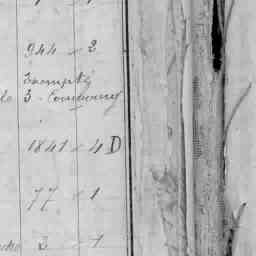 944 - 2
Exempts
3 - Company
1841 - 4 D
77 - 1
2 - 1